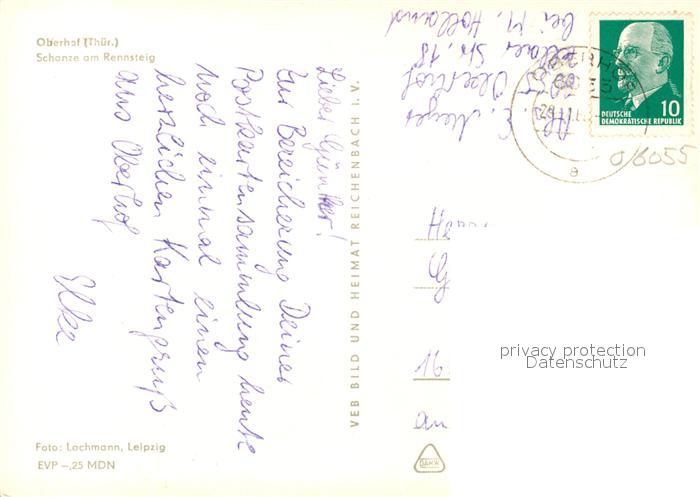 Oberhof (Thür.)
Schanze am Rennsteig
Lieber Günther!
Zur Bereicherung Deiner
Postkartensammlung heute
noch einmal einen
herzlichen Kartengruß
aus Oberhof
Elke
VEB BILD UND HEIMAT REICHENBACH i. V.
Foto: Lachmann, Leipzig
EVP -,25 MDN
Abs. E. Meyer
Oberhof
Str. 18
bei M. Holland
OBERHOF
10
DEUTSCHE
DEMOKRATISCHE REPUBLIK
e
0/6055
16
an
privacy protection
Datenschutz